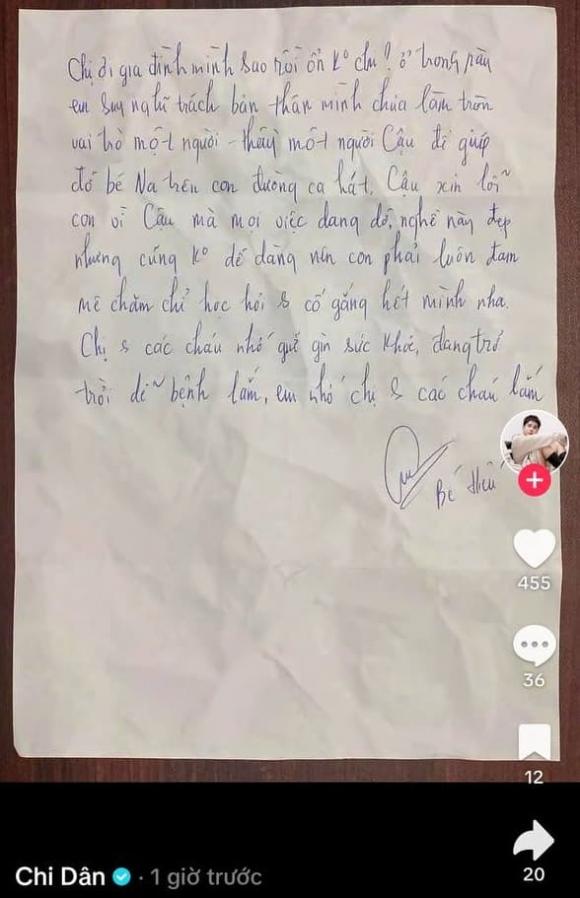 Chị ơi gia đình mình sao rồi ổn k° chị? ở trong này
em suy nghĩ trách bản thân mình chưa làm tròn
vai trò một người thầy một người Cậu để giúp
đỡ bé Na trên con đường ca hát. Cậu xin lỗi
con vì Cậu mà mọi việc dang dở, nghề này đẹp
nhưng cũng k° dễ dàng nên con phải luôn đam
mê chăm chỉ học hỏi & cố gắng hết mình nha.
Chị & các cháu nhớ giữ gìn sức khỏe, đang trở
trời dễ bệnh lắm, em nhớ chị & các cháu lắm
Bé Hiếu
455
36
12
20
Chi Dân · 1 giờ trước